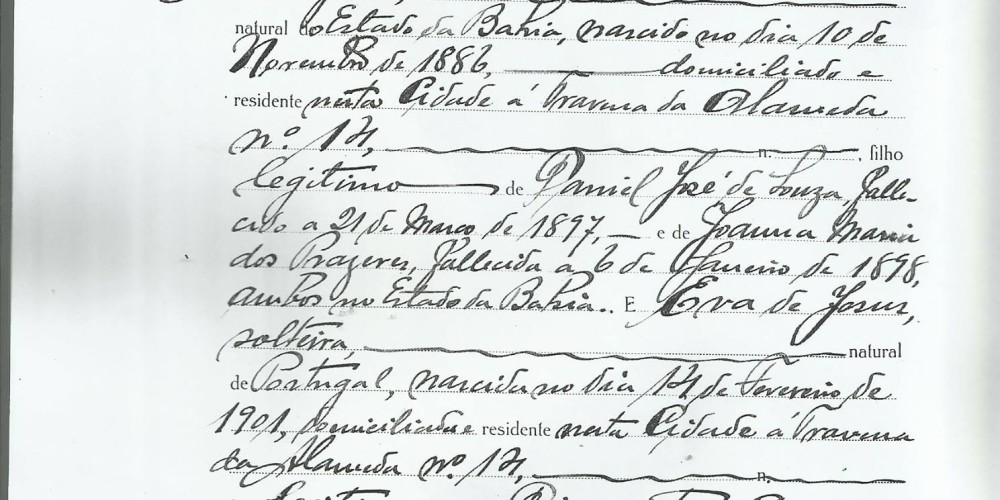 natural do Estado da Bahia, nascido no dia 10 de
Novembro de 1886, domiciliado e
residente nesta Cidade á Travessa da Alameda
nº 14, n. , filho
legitimo de Daniel José de Souza, falle-
cido a 21 de Março de 1897, e de Joanna Maria
dos Prazeres, fallecida a 6 de Janeiro de 1898,
ambos no Estado da Bahia.. E Eva de Jesus,
solteira, natural
de Portugal, nascida no dia 14 de Fevereiro de
1901, domiciliada e residente nesta Cidade á Travessa
da Alameda nº 14, n.